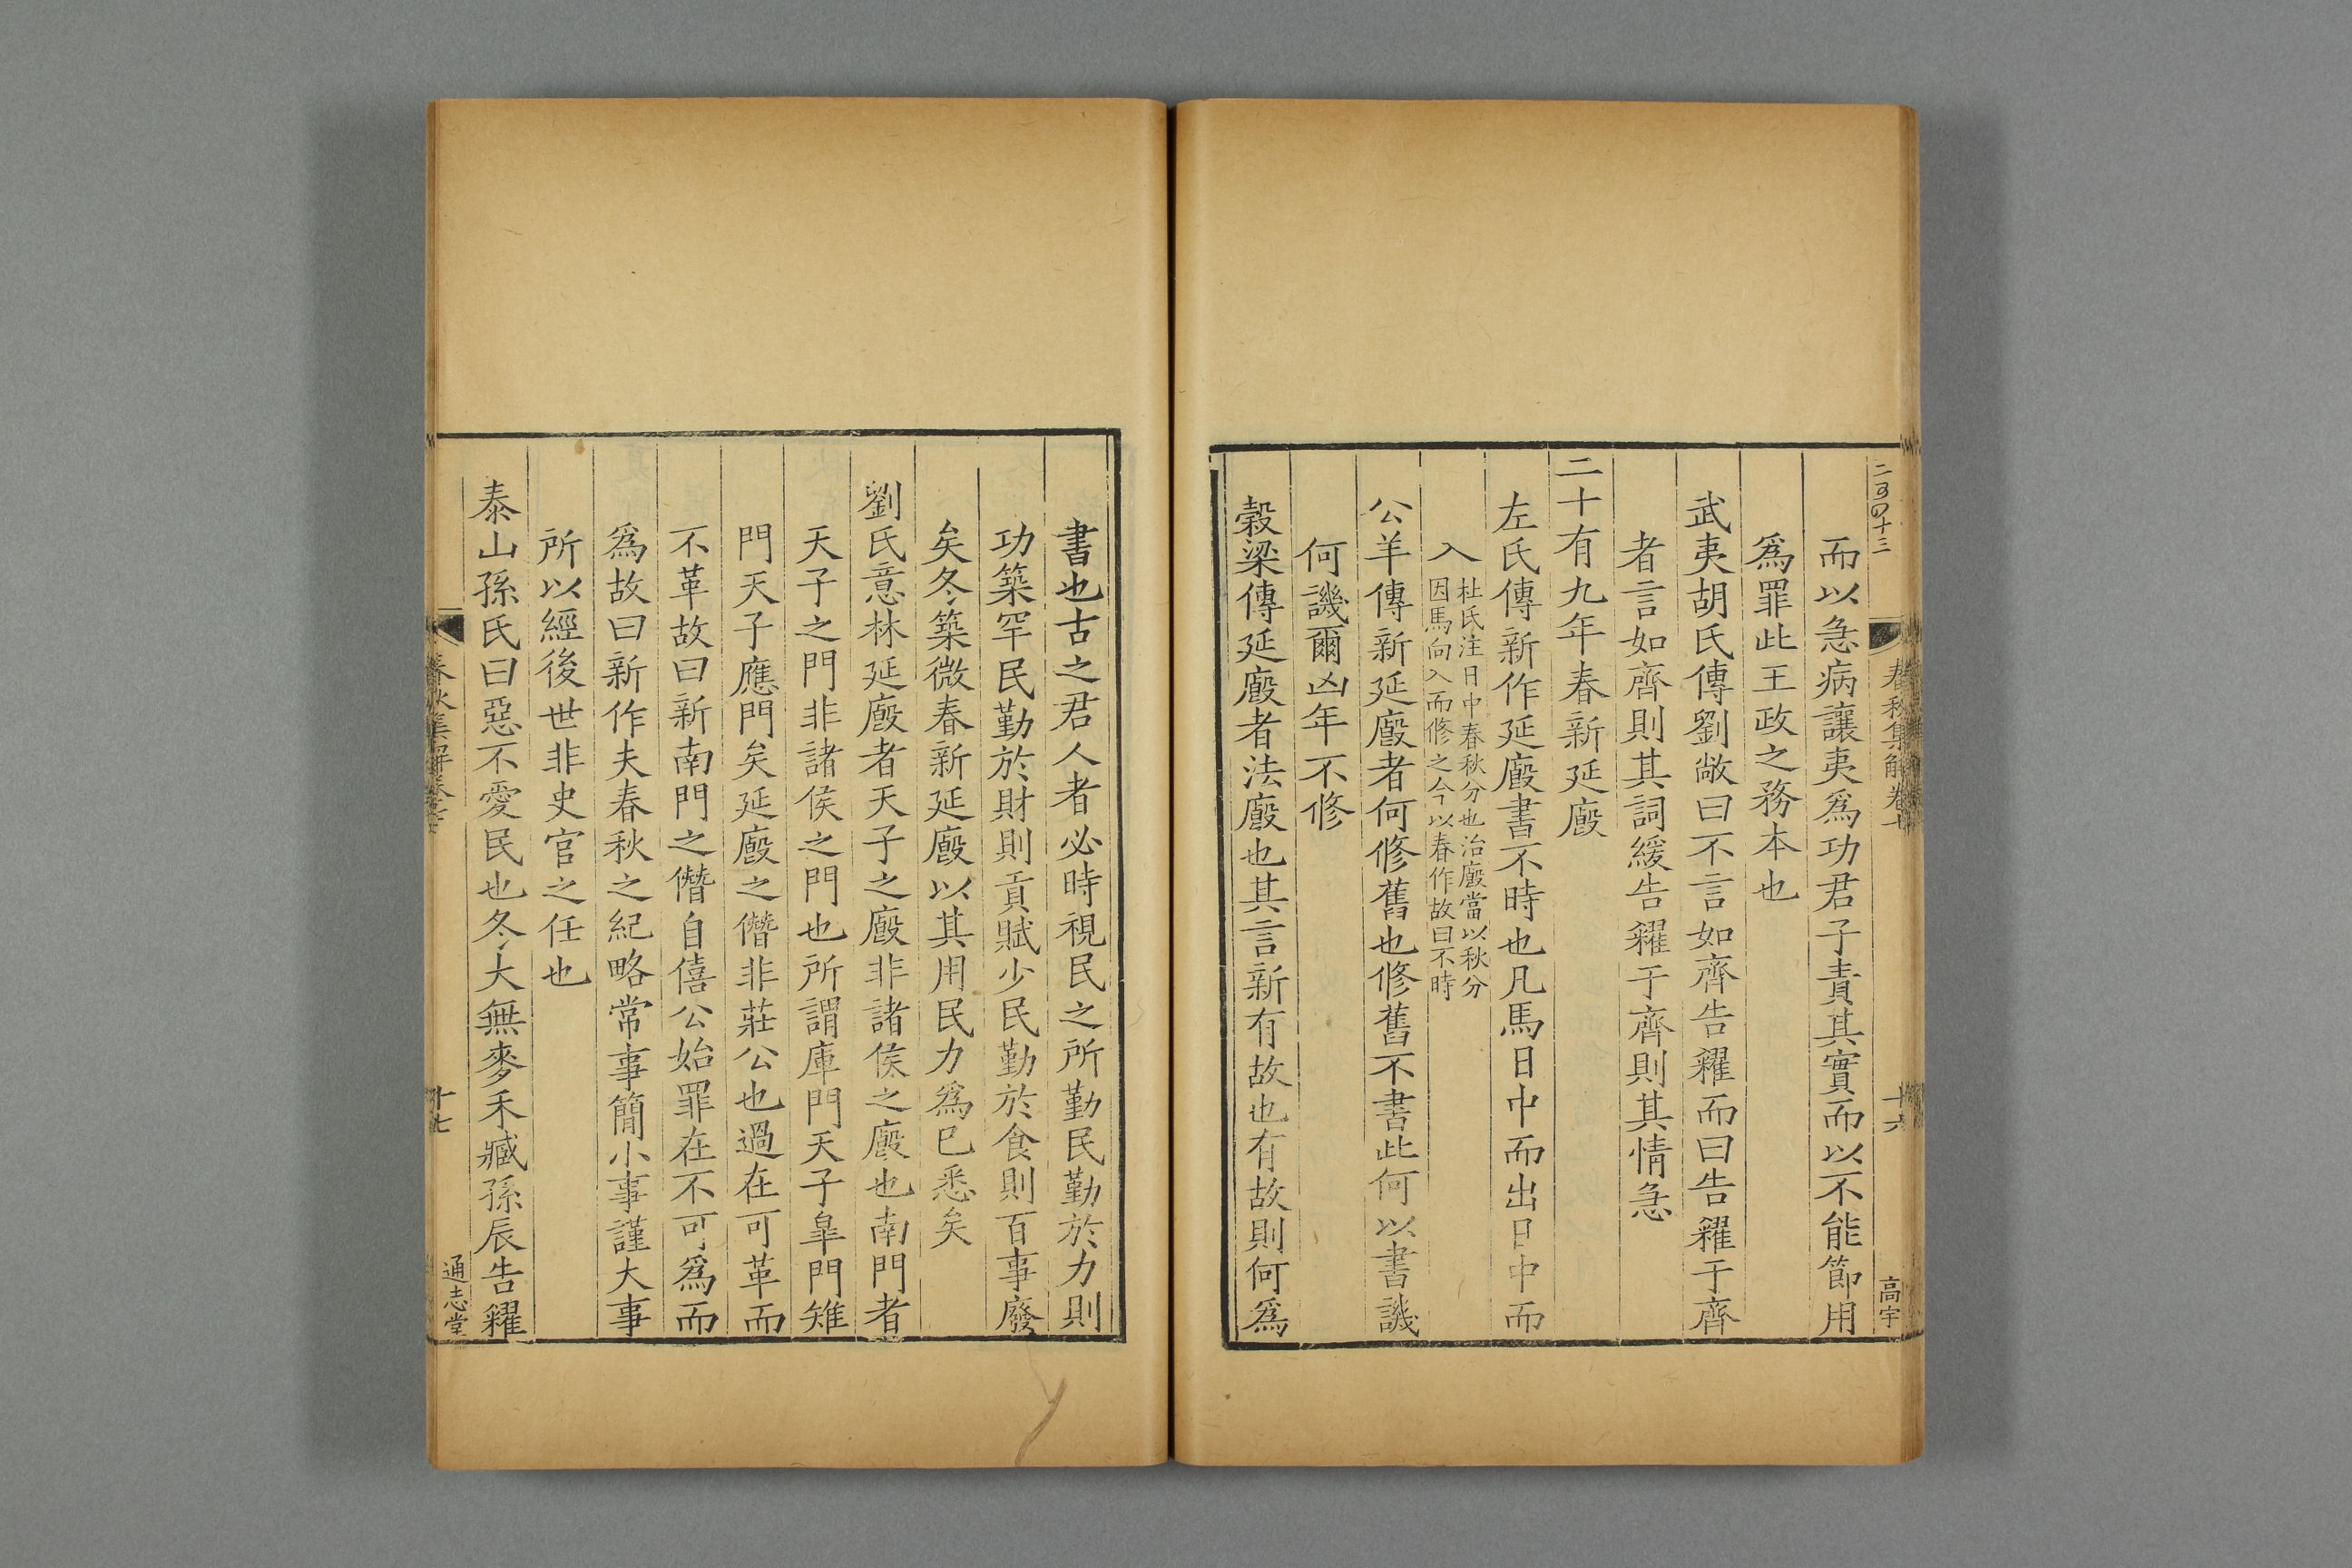 而以急病讓夷爲功君子責其實而以不能節用
爲罪此王政之務本也
武夷胡氏傳劉敞曰不言如齊告糴而曰告糴于齊
者言如齊則其詞緩告糴于齊則其情急
二十有九年春新延廏
左氏傳新作延廏書不時也凡馬日中而出日中而
入
杜氏注日中春秋分也治廏當以秋分
因馬向入而修之今以春作故曰不時
公羊傳新延廏者何修舊也修舊不書此何以書譏
何譏爾凶年不修
穀梁傳延廏者法廏也其言新有故也有故則何爲
春秋集解卷
十六
高宇
書也古之君人者必時視民之所勤民勤於力則
功築罕民勤於財則貢賦少民勤於食則百事廢
矣冬築微春新延廏以其用民力爲已悉矣
劉氏意林延廏者天子之廏非諸侯之廏也南門者
天子之門非諸侯之門也所謂庫門天子臯門雉
門天子應門矣延廏之僭非莊公也過在可革而
不革故曰新南門之僭自僖公始罪在不可爲而
爲故曰新作夫春秋之紀略常事簡小事謹大事
所以經後世非史官之任也
泰山孫氏曰惡不愛民也冬大無麥禾臧孫辰告糴
春秋集解卷
十七
通志堂